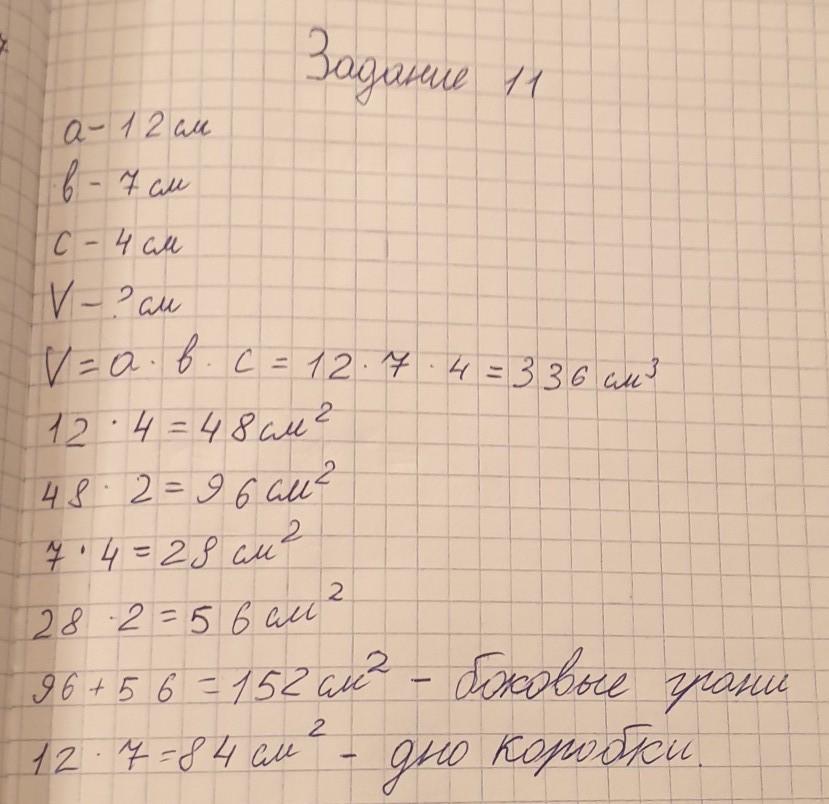 Задание 11
а - 12 см
в - 7 см
с - 4 см
V - ? см
V = а · в · с = 12 · 7 · 4 = 336 см³
12 · 4 = 48 см²
48 · 2 = 96 см²
7 · 4 = 28 см²
28 · 2 = 56 см²
96 + 56 = 152 см² - боковые грани
12 · 7 = 84 см² - дно коробки.